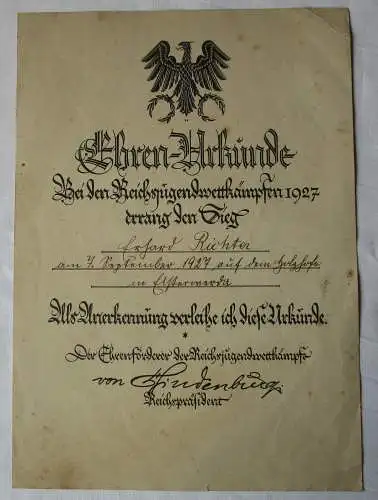 Ehren-Urkunde
Bei den Reichsjugendwettkämpfen 1927
errang den Sieg
Erhard Richter
am 7. September 1927 auf dem Holzhofe
in Elsterwerda
Als Anerkennung verleihe ich diese Urkunde.
*
Der Ehrenförderer der Reichsjugendwettkämpfe
von Hindenburg
Reichspräsident